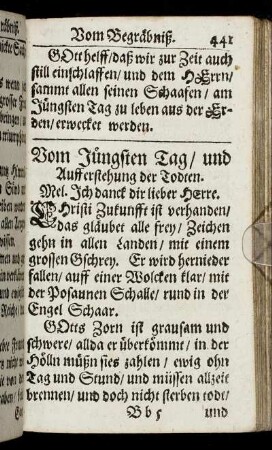 Vom Begräbniß. 441
GOtt helff/ daß wir zur Zeit auch
still einschlaffen/ und dem HErrn/
sammt allen seinen Schaafen/ am
Jüngsten Tag zu leben aus der Er-
den/ erwecket werden.
Vom Jüngsten Tag/ und
Aufferstehung der Todten.
Mel. Ich danck dir lieber HErre.
CHristi Zukunfft ist verhanden/
das gläubet alle frey/ Zeichen
gehn in allen Landen/ mit einem
grossen Gschrey. Er wird hernieder
fallen/ auff einer Wolcken klar/ mit
der Posaunen Schalle/ rund in der
Engel Schaar.
GOtts Zorn ist grausam und
schwere/ allda er überkömmt/ in der
Hölln müßn sies zahlen/ ewig ohn
Tag und Stund/ und müssen allzeit
brennen/ und doch nicht sterben todt/
B b 5 und